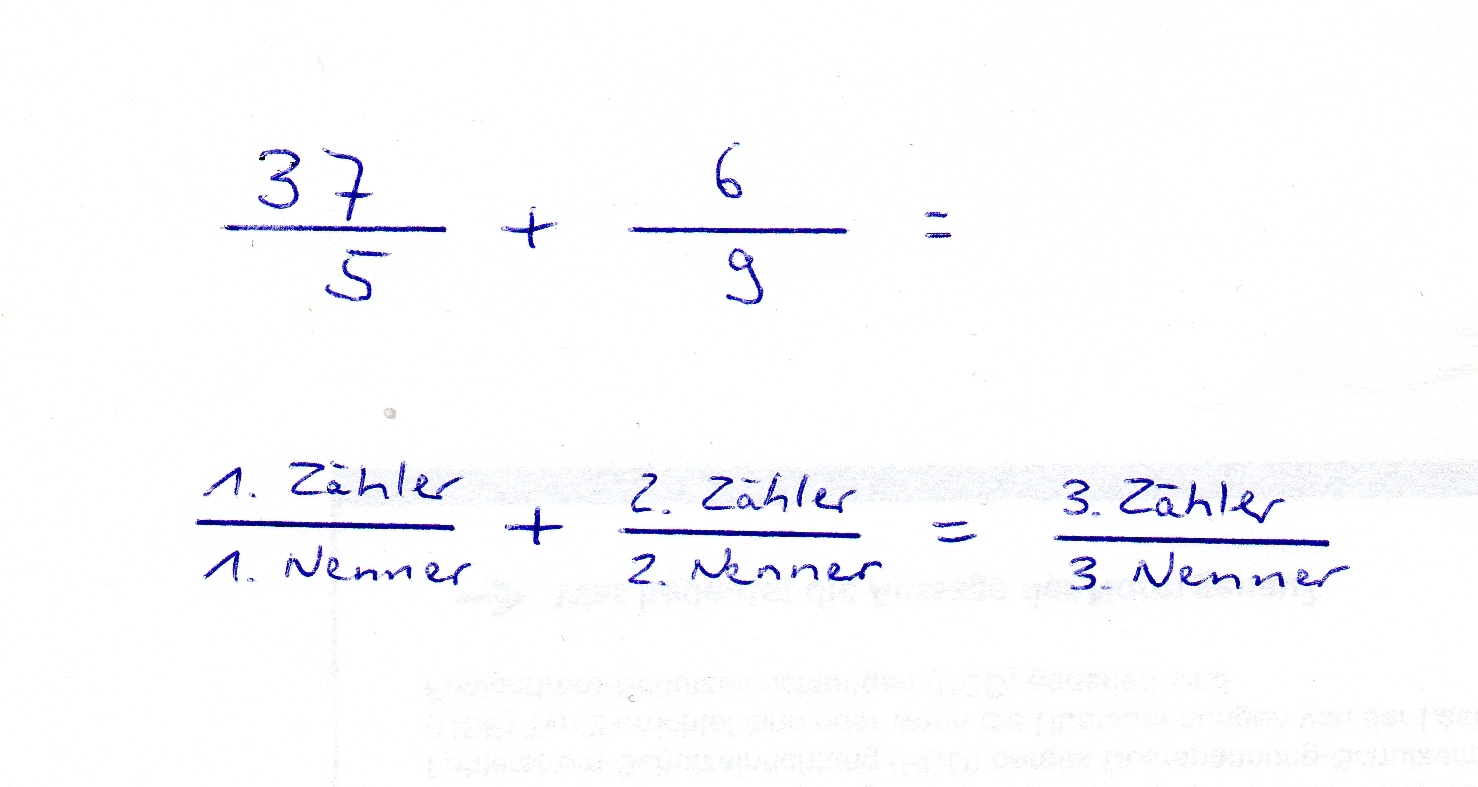 37/5 + 6/9 =
1. Zähler/1. Nenner + 2. Zähler/2. Nenner = 3. Zähler/3. Nenner